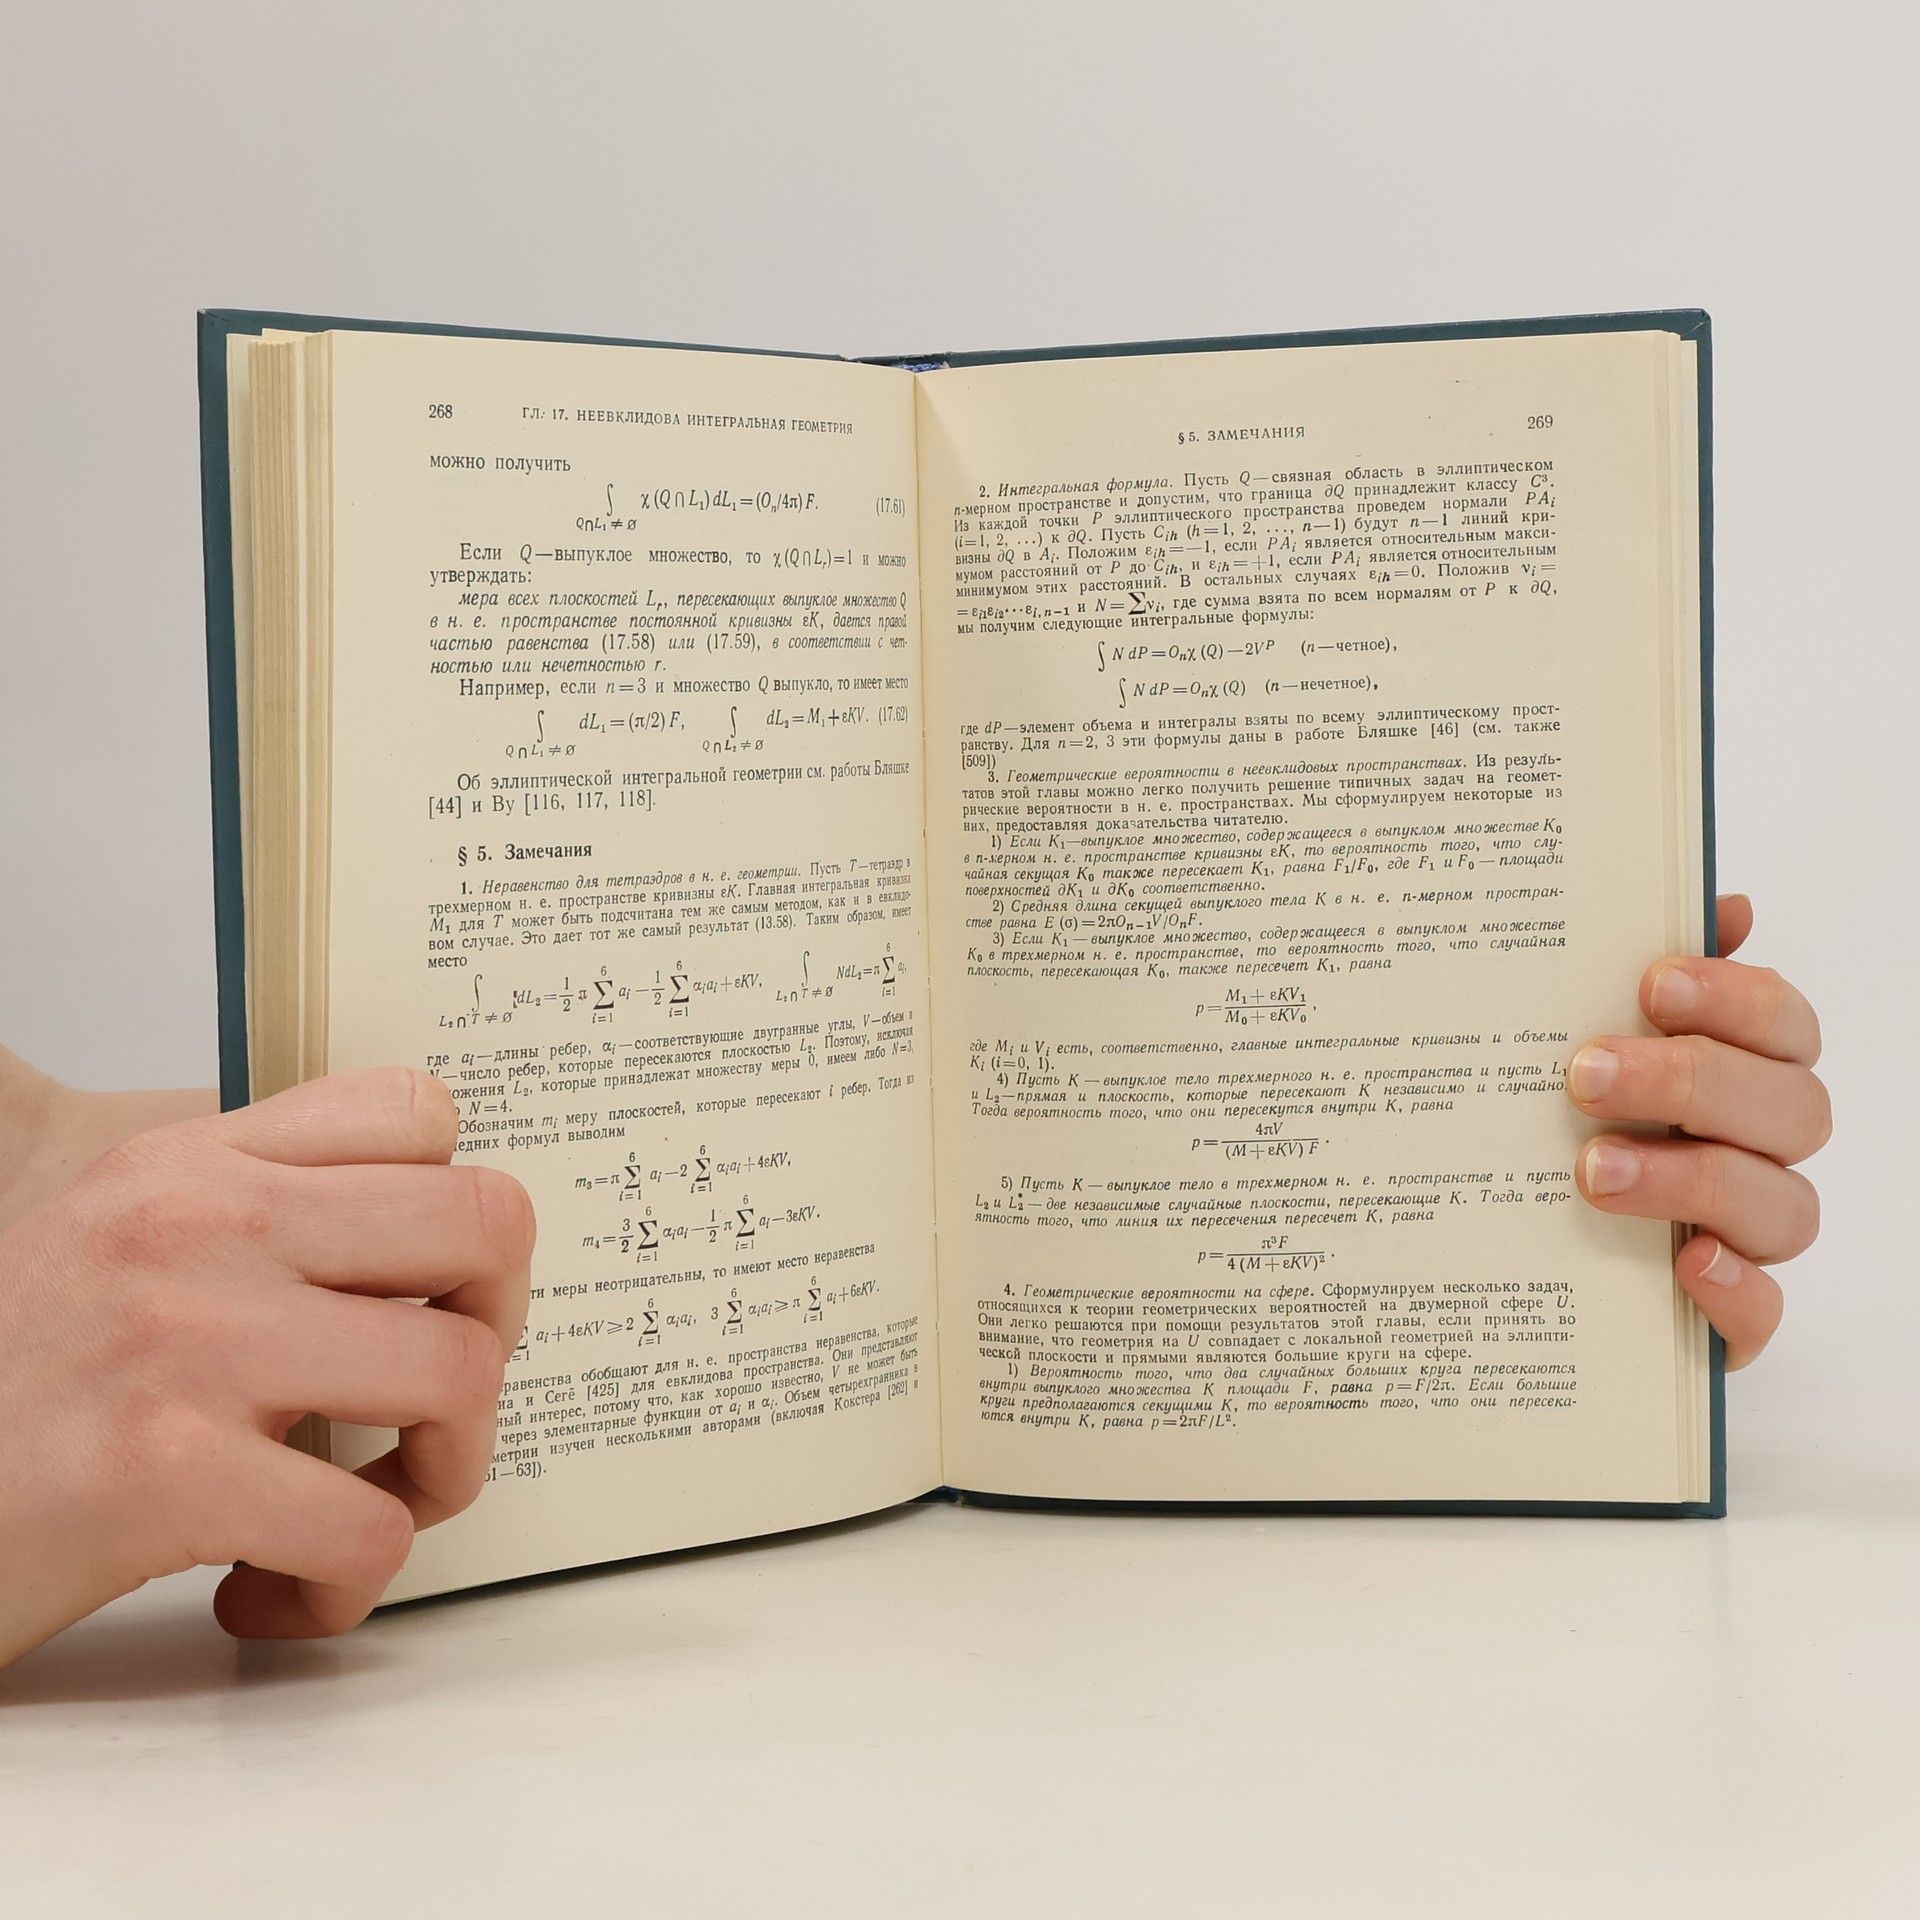 268 ГЛ. 17. НЕЕВКЛИДОВА ИНТЕГРАЛЬНАЯ ГЕОМЕТРИЯ
можно получить
∫ χ (Q ∩ L₁) dL₁ = (Oₙ/4π) F. (17.61)
Q∩L₁ ≠ ∅
Если Q—выпуклое множество, то χ (Q ∩ Lᵣ) = 1 и можно
утверждать:
мера всех плоскостей Lᵣ, пересекающих выпуклое множество Q
в н. е. пространстве постоянной кривизны εK, дается правой
частью равенства (17.58) или (17.59), в соответствии с чет-
ностью или нечетностью r.
Например, если n = 3 и множество Q выпукло, то имеет место
∫ dL₁ = (π/2) F, ∫ dL₂ = M₁ + εKV. (17.62)
Q ∩ L₁ ≠ ∅ Q ∩ L₂ ≠ ∅
Об эллиптической интегральной геометрии см. работы Бляшке
[44] и Ву [116, 117, 118].
§ 5. Замечания
1. Неравенство для тетраэдров в н. е. геометрии. Пусть T—тетраэдр в
трехмерном н. е. пространстве кривизны εK. Главная интегральная кривизна
M₁ для T может быть подсчитана тем же самым методом, как и в евклидо-
вом случае. Это дает тот же самый результат (13.58). Таким образом, имеет
место
∫ dL₂ = 1/2 π ∑ aᵢ — 1/2 ∑ αᵢaᵢ + εKV, ∫ NdL₂ = π ∑ aᵢ,
L₂ ∩ T ≠ ∅ i=1 6 i=1 6 L₂ ∩ T ≠ ∅ i=1 6
где aᵢ—длины ребер, αᵢ—соответствующие двугранные углы, V—объем и
N—число ребер, которые пересекаются плоскостью L₂. Поэтому, исключая
ожения L₂, которые принадлежат множеству меры 0, имеем либо N=3,
N = 4.
Обозначим mᵢ меру плоскостей, которые пересекают i ребер. Тогда из
едних формул выводим
m₃ = π ∑ aᵢ — 2 ∑ αᵢaᵢ + 4εKV,
m₄ = 3/2 ∑ αᵢaᵢ — 1/2 π ∑ aᵢ — 3εKV.
ти меры неотрицательны, то имеют место неравенства
∑ aᵢ + 4εKV ⩾ 2 ∑ αᵢaᵢ, 3 ∑ αᵢaᵢ ⩾ π ∑ aᵢ + 6εKV.
равенства обобщают для н. е. пространства неравенства, которые
иа и Сегё [425] для евклидова пространства. Они представляют
ный интерес, потому что, как хорошо известно, V не может быть
через элементарные функции от aᵢ и αᵢ. Объем четырехгранника в
метрии изучен несколькими авторами (включая Кокстера [262] и
61—63]).
§ 5. ЗАМЕЧАНИЯ 269
2. Интегральная формула. Пусть Q—связная область в эллиптическом
n-мерном пространстве и допустим, что граница ∂Q принадлежит классу C³.
Из каждой точки P эллиптического пространства проведем нормали PAᵢ
(i=1, 2, ...) к ∂Q. Пусть Cᵢₕ (h=1, 2, ..., n—1) будут n—1 линий кри-
визны ∂Q в Aᵢ. Положим εᵢₕ=—1, если PAᵢ является относительным макси-
мумом расстояний от P до Cᵢₕ, и εᵢₕ=+1, если PAᵢ является относительным
минимумом этих расстояний. В остальных случаях εᵢₕ=0. Положив νᵢ=
= εᵢ₁εᵢ₂...εᵢ,ₙ₋₁ и N=∑νᵢ, где сумма взята по всем нормалям от P к ∂Q,
мы получим следующие интегральные формулы:
∫ N dP = Oₙχ (Q) — 2Vᴾ (n—четное),
∫ N dP = Oₙχ (Q) (n—нечетное),
где dP—элемент объема и интегралы взяты по всему эллиптическому прост-
ранству. Для n=2, 3 эти формулы даны в работе Бляшке [46] (см. также
[509])
3. Геометрические вероятности в неевклидовых пространствах. Из резуль-
татов этой главы можно легко получить решение типичных задач на геомет-
рические вероятности в н. е. пространствах. Мы сформулируем некоторые из
них, предоставляя доказательства читателю.
1) Если K₁—выпуклое множество, содержащееся в выпуклом множестве K₀
в n-мерном н. е. пространстве кривизны εK, то вероятность того, что слу-
чайная секущая K₀ также пересекает K₁, равна F₁/F₀, где F₁ и F₀ — площади
поверхностей ∂K₁ и ∂K₀ соответственно.
2) Средняя длина секущей выпуклого тела K в н. е. n-мерном простран-
стве равна E (σ) = 2πOₙ₋₁V/OₙF.
3) Если K₁ — выпуклое множество, содержащееся в выпуклом множестве
K₀ в трехмерном н. е. пространстве, то вероятность того, что случайная
плоскость, пересекающая K₀, также пересечет K₁, равна
p = (M₁ + εKV₁)/(M₀ + εKV₀),
где Mᵢ и Vᵢ есть, соответственно, главные интегральные кривизны и объемы
Kᵢ (i=0, 1).
4) Пусть K — выпуклое тело трехмерного н. е. пространства и пусть L₁
и L₂—прямая и плоскость, которые пересекают K независимо и случайно.
Тогда вероятность того, что они пересекутся внутри K, равна
p = 4πV/((M + εKV) F).
5) Пусть K — выпуклое тело в трехмерном н. е. пространстве и пусть
L₂ и L₂* — две независимые случайные плоскости, пересекающие K. Тогда веро-
ятность того, что линия их пересечения пересечет K, равна
p = π³F/(4 (M + εKV)²).
4. Геометрические вероятности на сфере. Сформулируем несколько задач,
относящихся к теории геометрических вероятностей на двумерной сфере U.
Они легко решаются при помощи результатов этой главы, если принять во
внимание, что геометрия на U совпадает с локальной геометрией на эллипти-
ческой плоскости и прямыми являются большие круги на сфере.
1) Вероятность того, что два случайных больших круга пересекаются
внутри выпуклого множества K площади F, равна p = F/2π. Если большие
круги предполагаются секущими K, то вероятность того, что они пересека-
ются внутри K, равна p = 2πF/L².